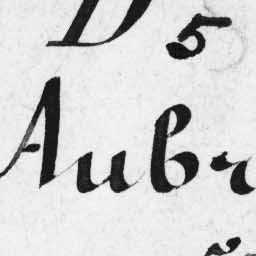 D 5
Aubr